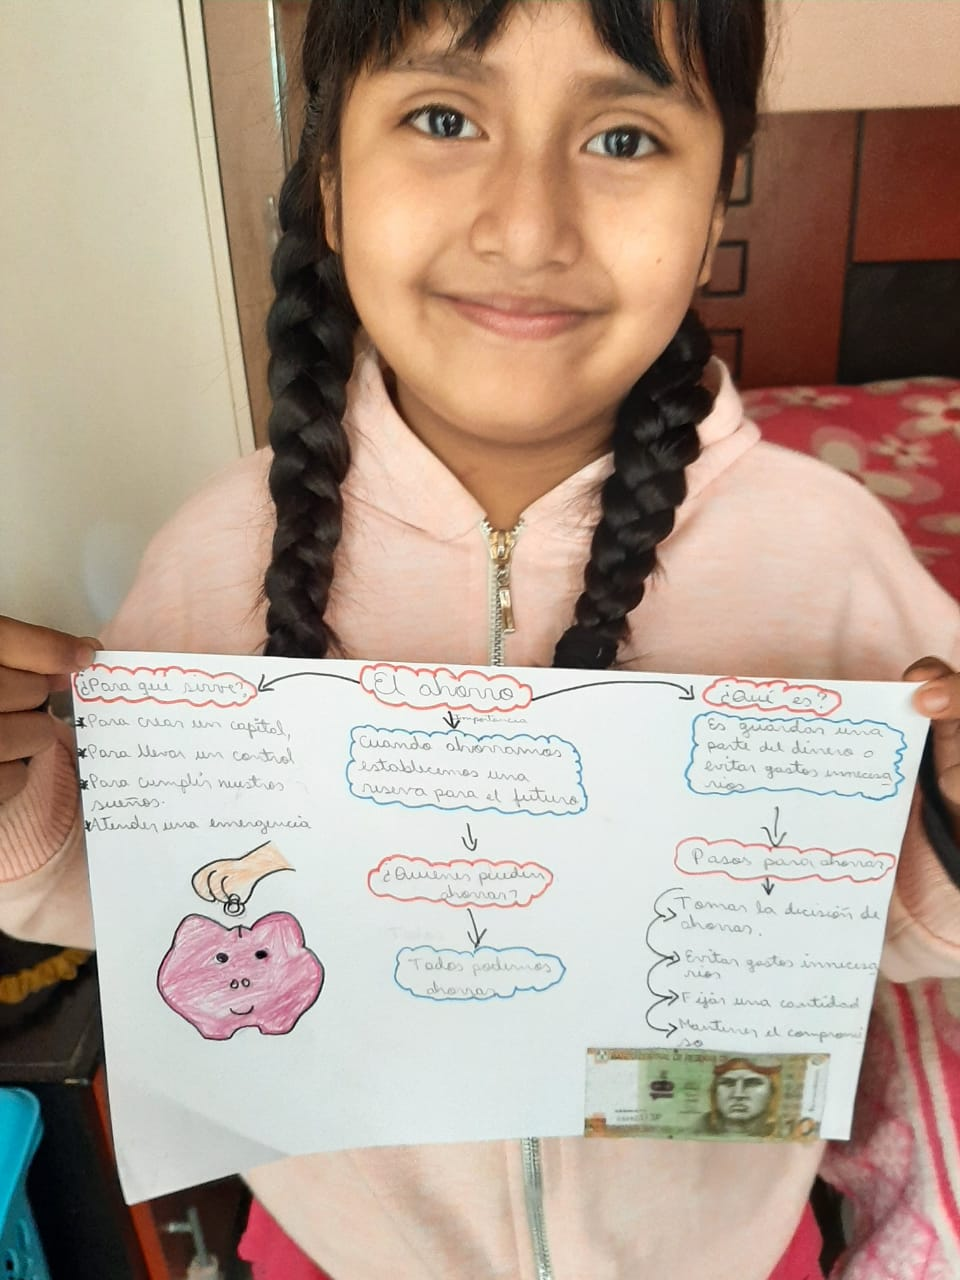 El ahorro
¿Para qué sirve?
*Para crear un capital,
*Para llevar un control
*Para cumplir nuestros
sueños.
*Atender una emergencia
Importancia
Cuando ahorramos
establecemos una
reserva para el futuro
¿Quienes pueden
ahorrar?
Todos
Todos podemos
ahorrar
¿Qué es?
Es guardar una
parte del dinero o
evitar gastos inneces
rios
Pasos para ahorrar
Tomar la decisión de
ahorrar.
Evitar gastos innecesa
rios
Fijar una cantidad
Mantener el compromi
so
BANCO CENTRAL DE RESERVA DE
10
10